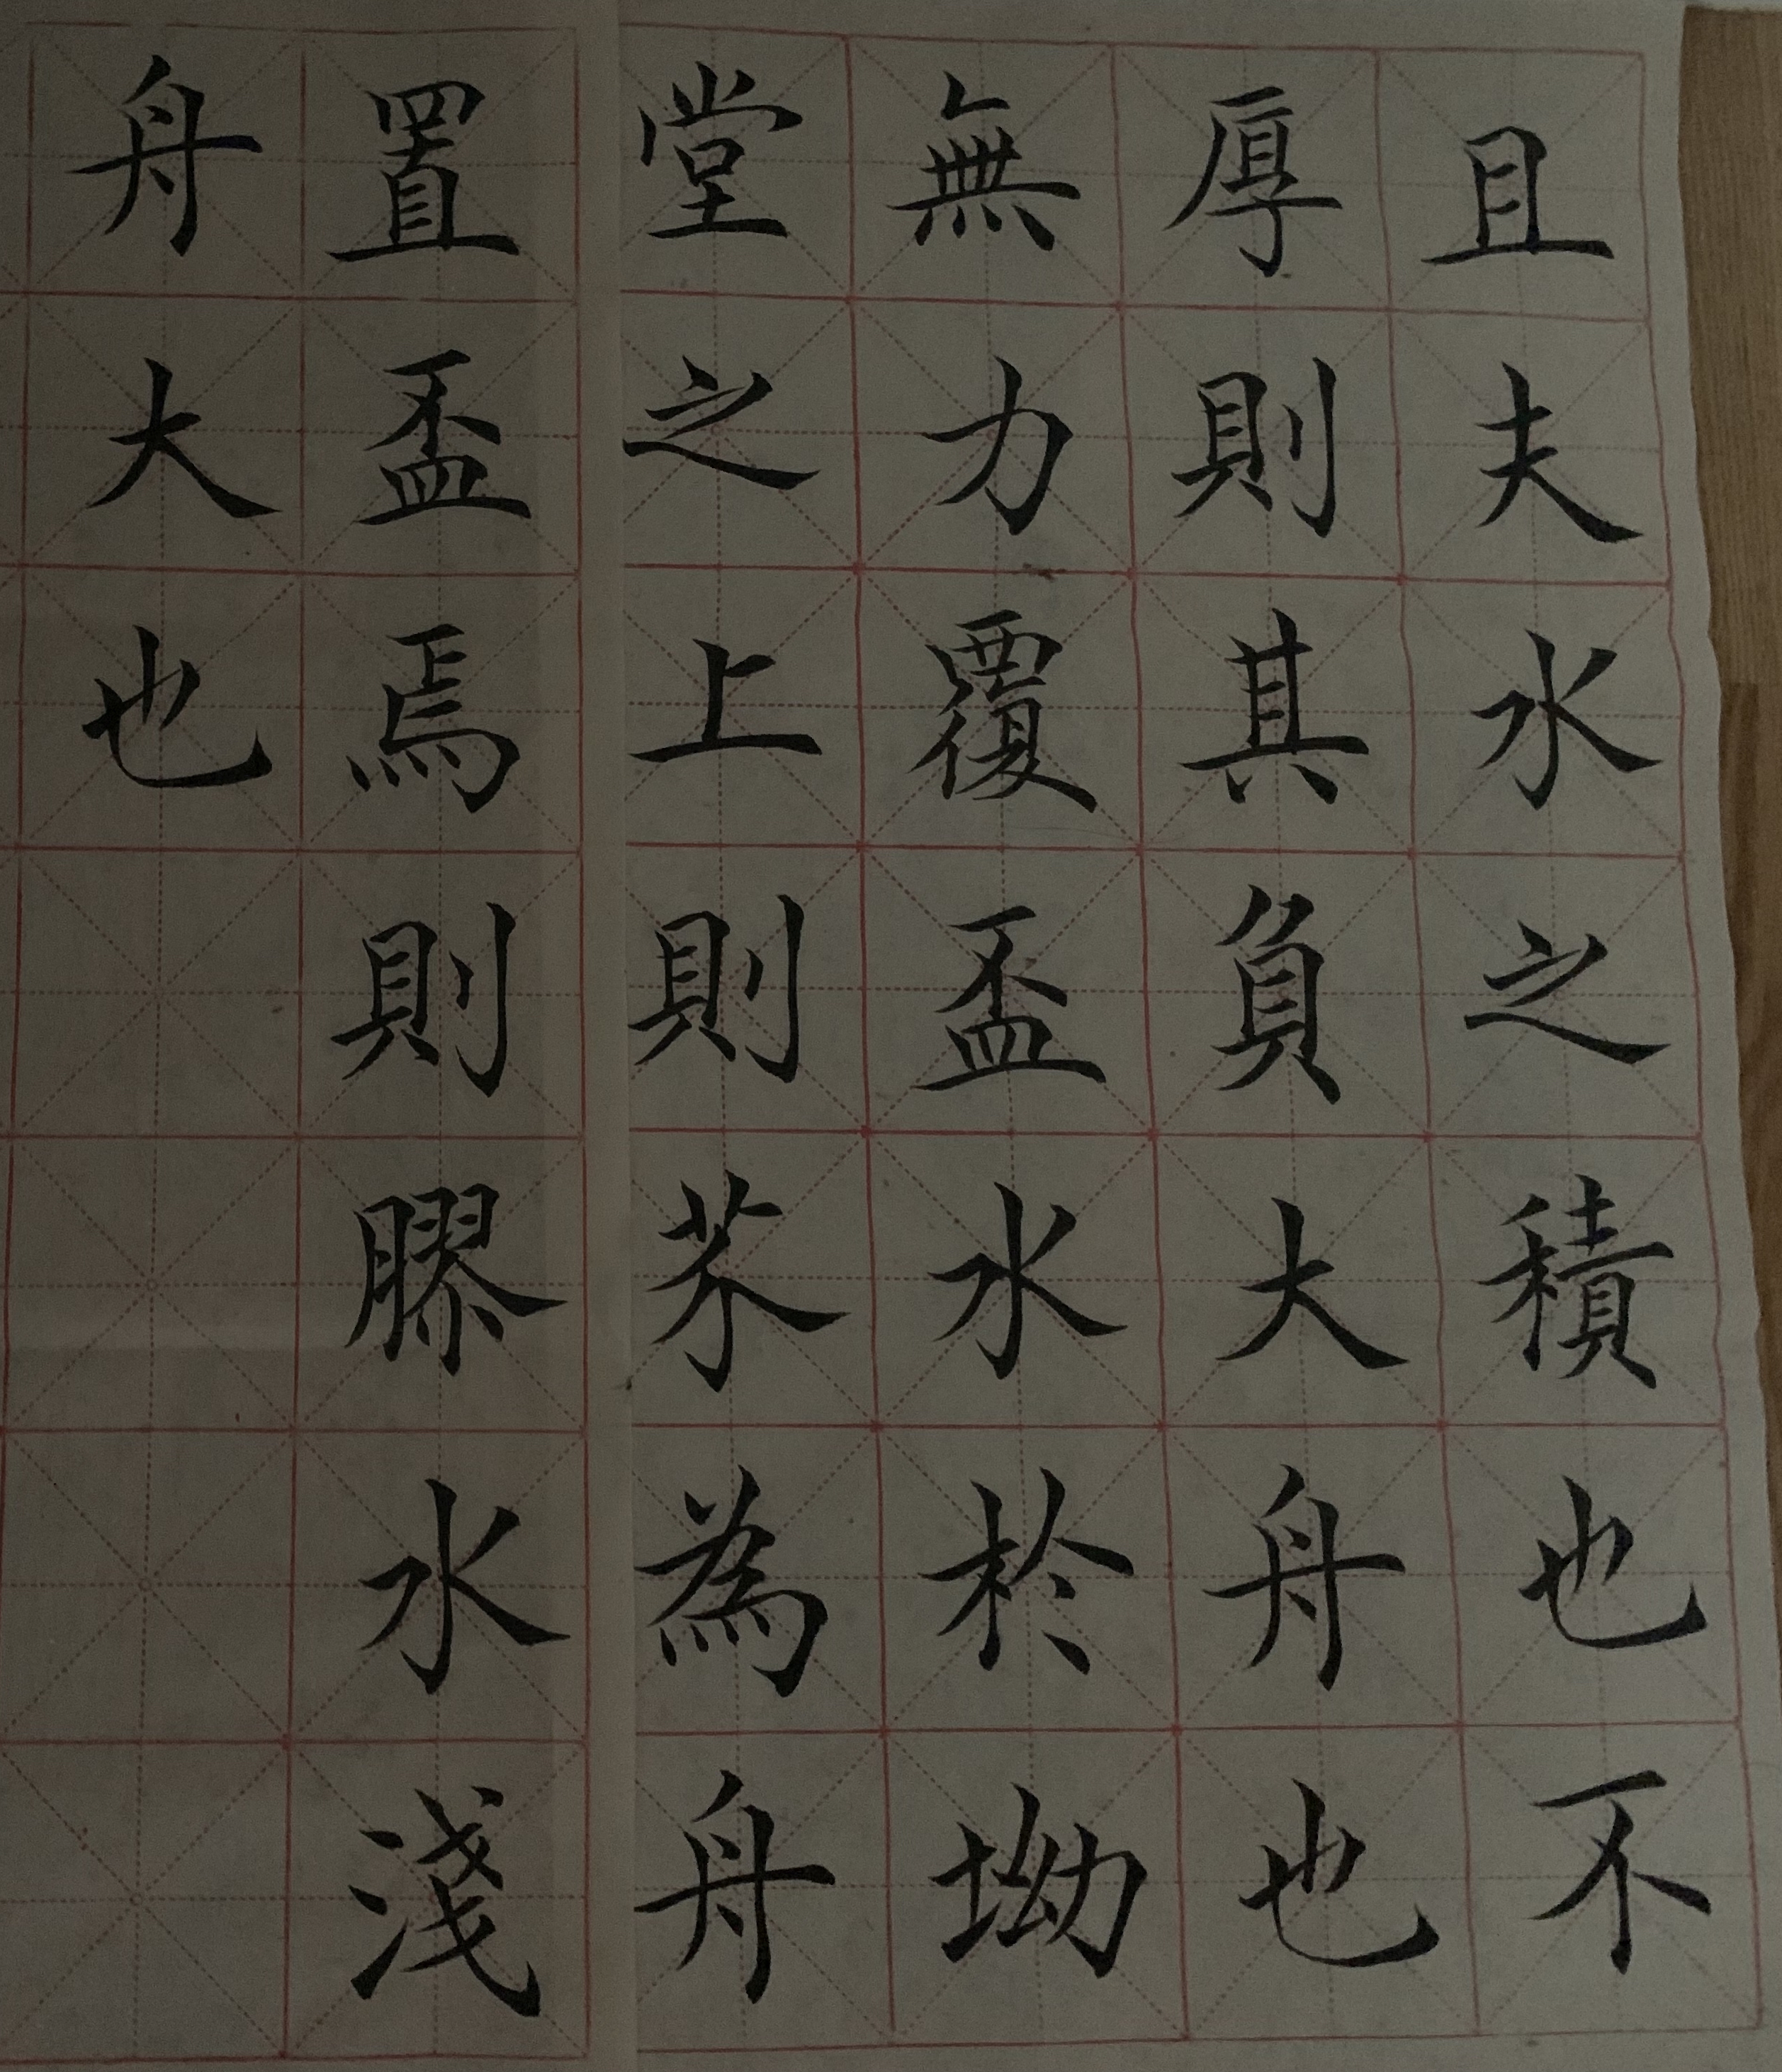 且夫水之積也不
厚則其負大舟也
無力覆盃水於坳
堂之上則芥為舟
置盃焉則膠水淺
舟大也